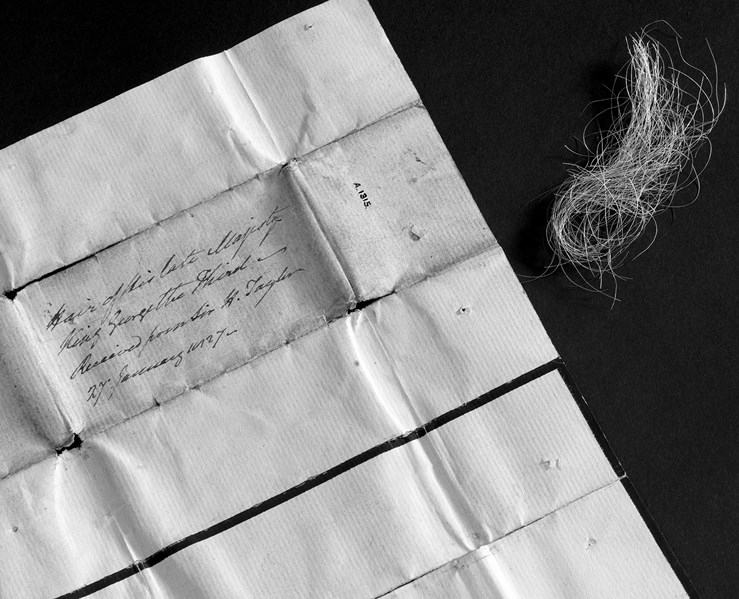 Hair of His late Majesty
King George the Third.
Received from Sir H. Taylor
27. January 1827.
A.1315.